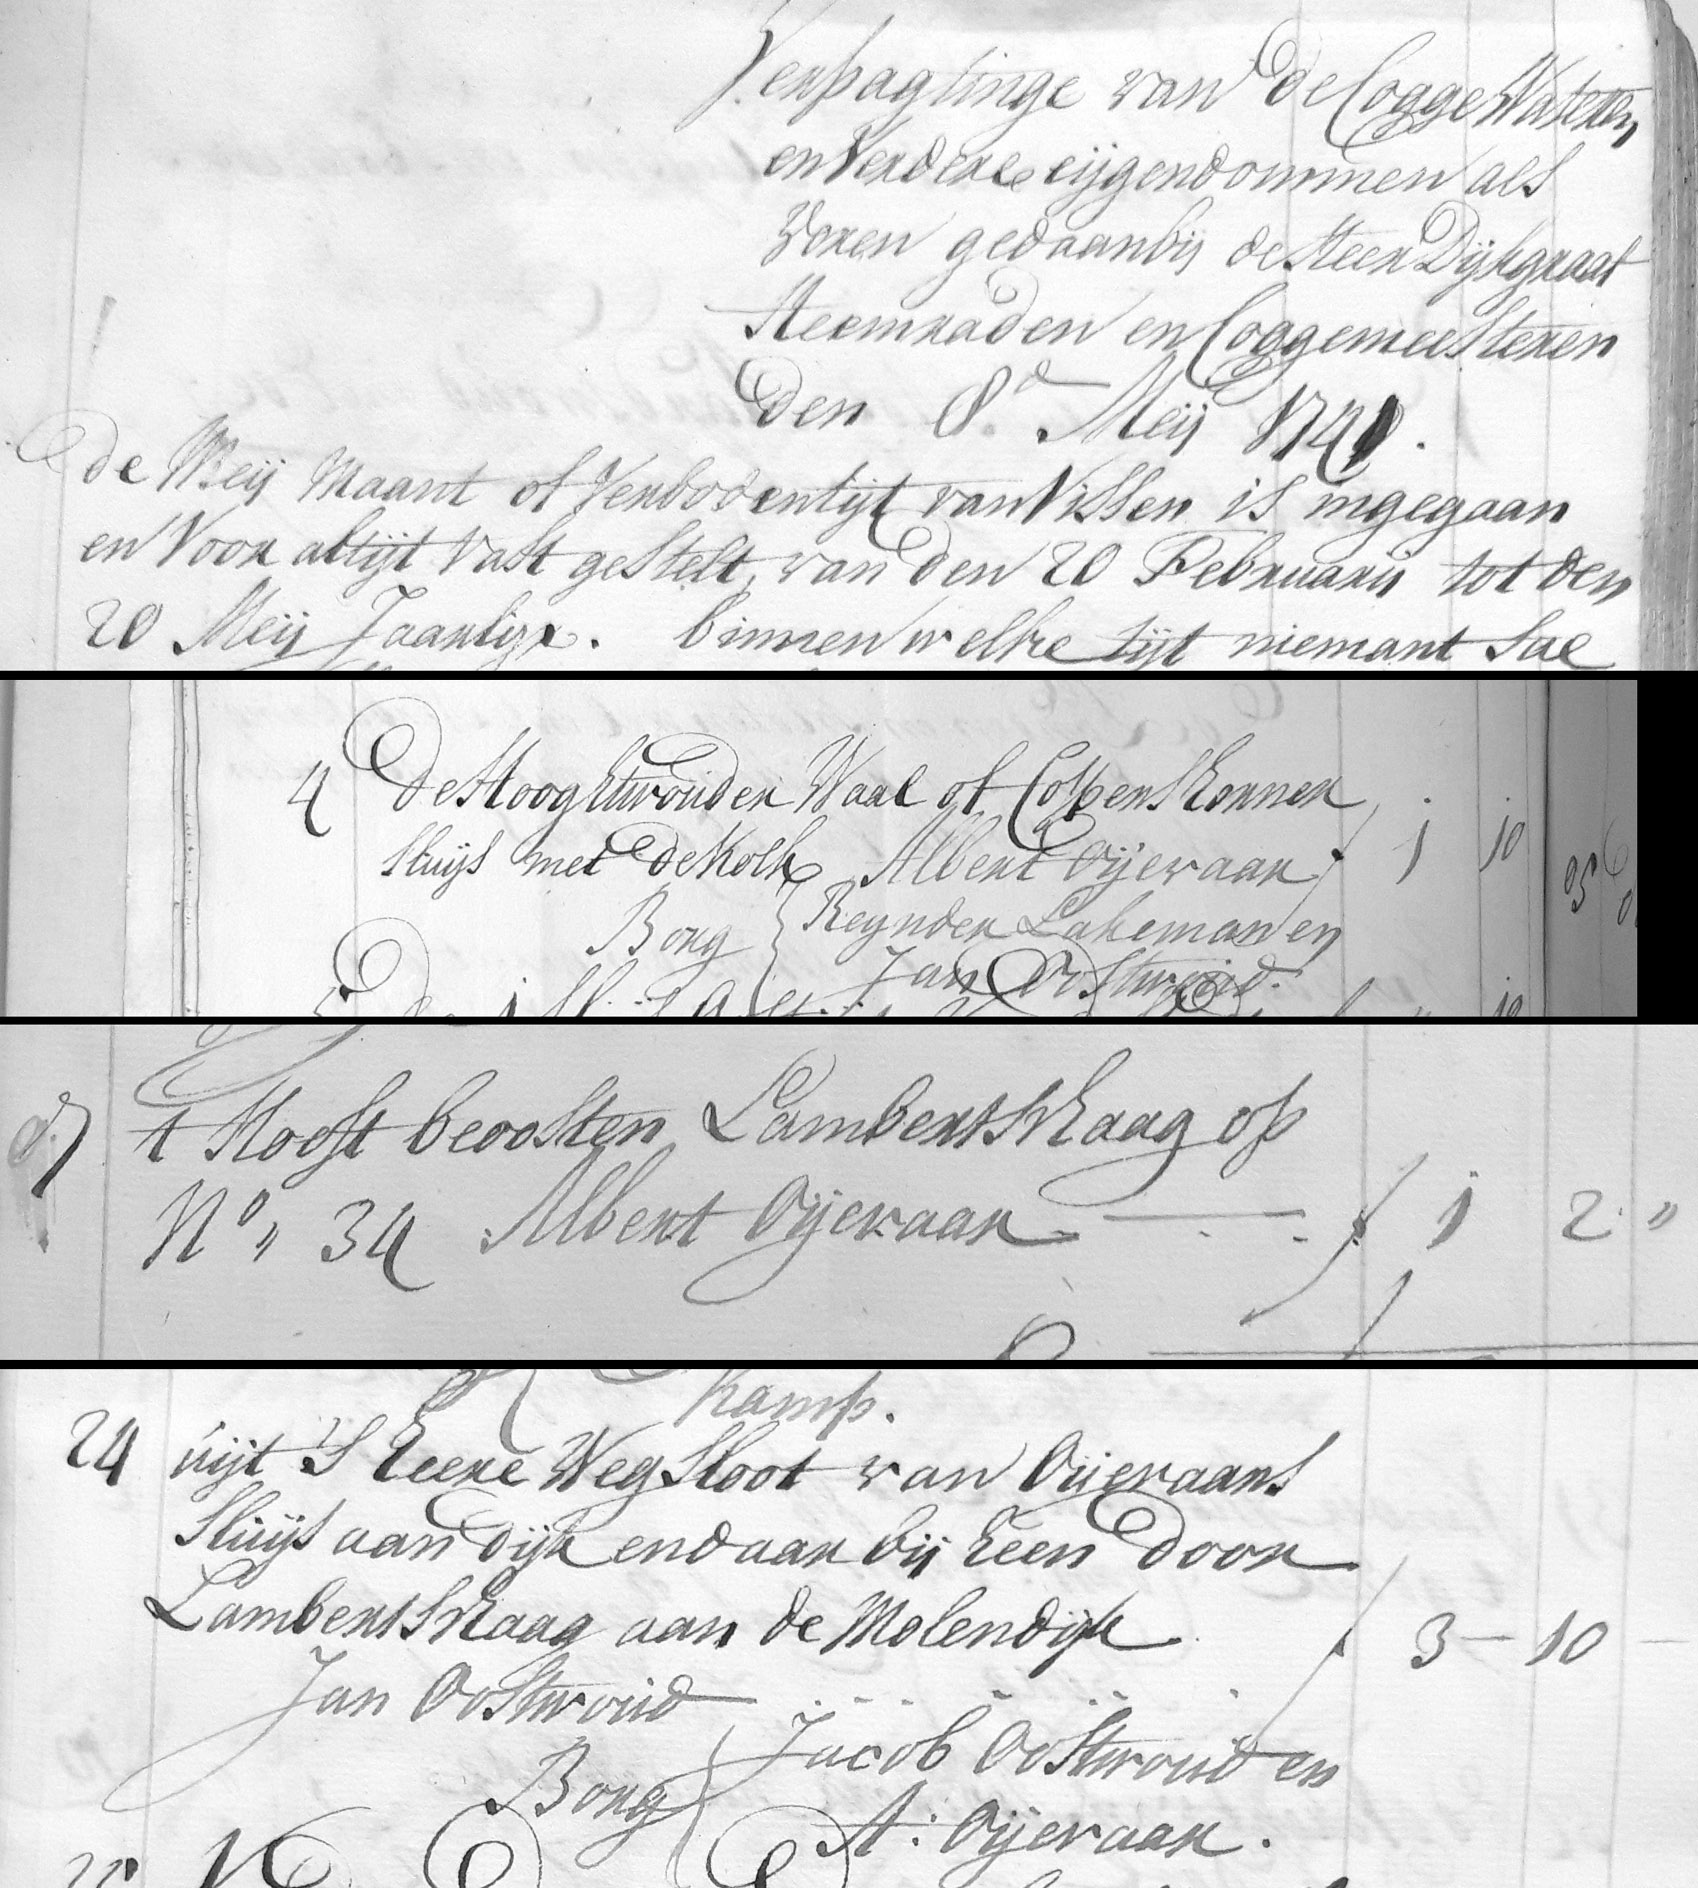 Verpagtinge van de Cogge Wateren
en Verdere eijgendommen als
Voren gedaan bij de Heer Dijkgraaf
Heemraden en Coggemeesteren
Den 8.e Meij 1741.
de Meij Maant of Verbodentijt van Vissen is ingegaan
en Voor altijt Vast gestelt, van den 20 Februarij tot den
20 Meij Jaarlijx. binnen welke tijt niemant sal
4 De Hooghtwouder Waal of Costers kornner
Sluijs met de Kolk Albert Oijevaar / 1 10
Borg { Reynder Lakeman en
Jan Oostwoud.
't Hooft beoosten Lambertskhaag op
No,, 34 Albert Oijevaar — / 1 2 "
kamp.
24 uijt 's heere Weg Sloot van Oijevaars
Sluijs aan dijk en daar bij heen door
Lambertskhaag aan de Molendijk / 3 — 10 —
Jan Oostwoud
Borg { Jacob Oostwoud en
A: Oijevaar.